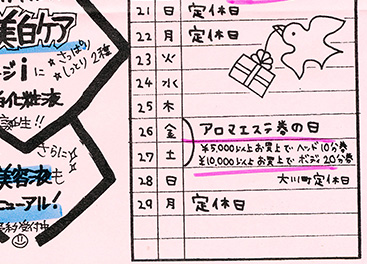 美白ケア
さっぱり
しっとり 2種
ージiに
白化粧液
誕生!!
さらに
美容液も
ニューアル!
約受付中
21 日 定休日
22 月 定休日
23 火
24 水
25 木
26 金 アロマエステ券の日
¥5,000以上お買上で ヘッド10分券
27 土 ¥10,000以上お買上で ボディ20分券
28 日 大川町定休日
29 月 定休日